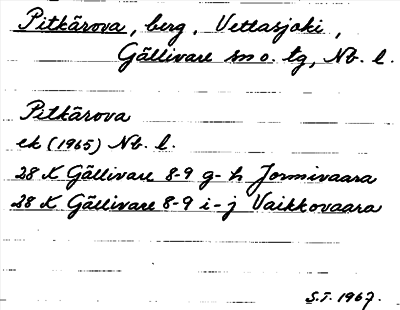 Pitkärova, berg, Vettasjoki,
Gällivare sn o. tg, Nb. l.
Pitkärova
ek (1965) Nb. l.
28 K Gällivare 8-9 g-h Jormivaara
28 K Gällivare 8-9 i-j Vaikkovaara
S.T. 1967.